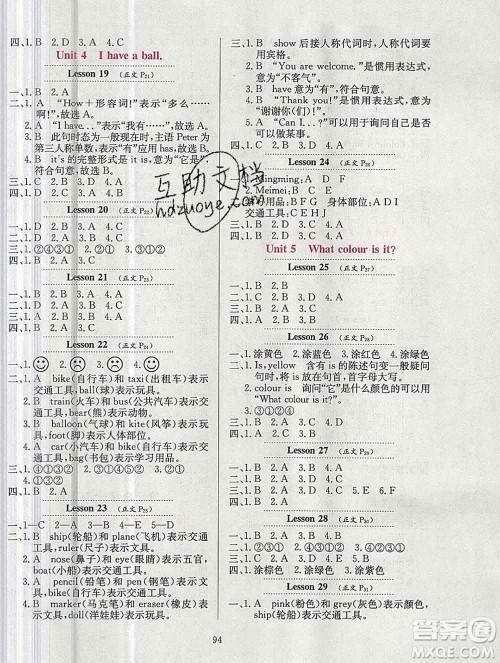 四、1. B　2. D　3. A　4. C
Unit 4　I have a ball.
Lesson 19　(正文 P21)
一、1. B　2. A
二、1. A　“How＋形容词!”表示“多么……啊!”,故选 A。
2. A　“I have...”表示“我有……”,故选 A。
3. B　此句时态为一般现在时,主语 Peter 为第三人称单数,表示“有”应用 has,故选 B。
4. B　it's 的完整形式是 it is,意为“它是”,符合句意,故选 B。
三、1. C　2. D　3. B　4. A
Lesson 20　(正文 P22)
一、1. B　2. B　3. A　4. A
二、1. B　2. C　3. A
三、②④③①
四、1. B　2. D　3. C　4. A
Lesson 21　(正文 P23)
一、1. B　2. A
二、1. B　2. D　3. A　4. C
三、1. B　2. D　3. A　4. C
四、1. B　2. A　3. C
Lesson 22　(正文 P24)
二、1. A　bike(自行车)和 taxi(出租车)表示交通工具,ball(球)表示玩具。
2. B　train(火车)和 bus(公共汽车)表示交通工具,bear(熊)表示动物。
3. B　balloon(气球)和 kite(风筝)表示玩具,foot(脚)表示人体部位。
4. A　car(小汽车)和 bike(自行车)表示交通工具,bag(书包)表示学习用品。
三、1. ④①③②　2. ①③②④　3. ③②①
四、1. B　2. A
Lesson 23　(正文 P25)
一、1—C　2—A　3—D　4—B
二、1. B　ship(轮船)和 plane(飞机)表示交通工具,ruler(尺子)表示文具。
2. A　nose(鼻子)和 eye(眼睛)表示五官,boat(小船)表示交通工具。
3. A　pencil(铅笔)和 pen(钢笔)表示文具,ship(轮船)表示交通工具。
4. B　marker(马克笔)和 eraser(橡皮)表示文具,doll(洋娃娃)表示玩具。
三、1. B　show 后接人称代词时,人称代词要用宾格形式。
2. B　“You are welcome.”是惯用表达式,意为“不客气”。
3. B　have 意为“有”,符合句意。
4. B　“Thank you!”是惯用表达式,意为“谢谢你(们)!”
5. A　“Can I...?”可以用于询问自己可以做某事。
Lesson 24　(正文 P26)
一、1. Mingming: A　D　F
2. Meimei: B　C　E
二、学习用品: B F G　身体部位: A D I
交通工具: C E H J
三、1. B　2. C　3. D　4. A
Unit 5　What colour is it?
Lesson 25　(正文 P27)
一、1. B　2. B
二、1. B　2. D　3. C　4. A
三、1. C　2. B　3. A　4. B　5. B
四、1. C　2. B　3. A
Lesson 26　(正文 P28)
一、1. 涂黄色　2. 涂蓝色　3. 涂红色　4. 涂绿色
二、1. Is, yellow　含有 is 的陈述句变一般疑问句时,将 is 放句首,首字母大写。
2. colour is　询问“它”是什么颜色的可以用“What colour is it?”
三、③①②④
四、1. B　2. D　3. C　4. A
Lesson 27　(正文 P29)
一、1. A　2. B
二、1. B　2. D　3. A　4. C
三、1. C　2. B　3. A　4. D　5. F　6. E
四、1. A　2. B　3. A　4. B
Lesson 28　(正文 P30)
一、1. B　2. A　3. A　4. A
二、1. ②③①④　2. ③②①④　3. ②①③
三、1. C　2. B　3. A
四、1. 涂棕色　2. 涂绿色　3. 涂紫色
Lesson 29　(正文 P31)
一、1. A　pink(粉色)和 grey(灰色)表示颜色,ship(轮船)表示交通工具。
94
互助文档
hdzuoye.com
答案圈
MXQE.COM